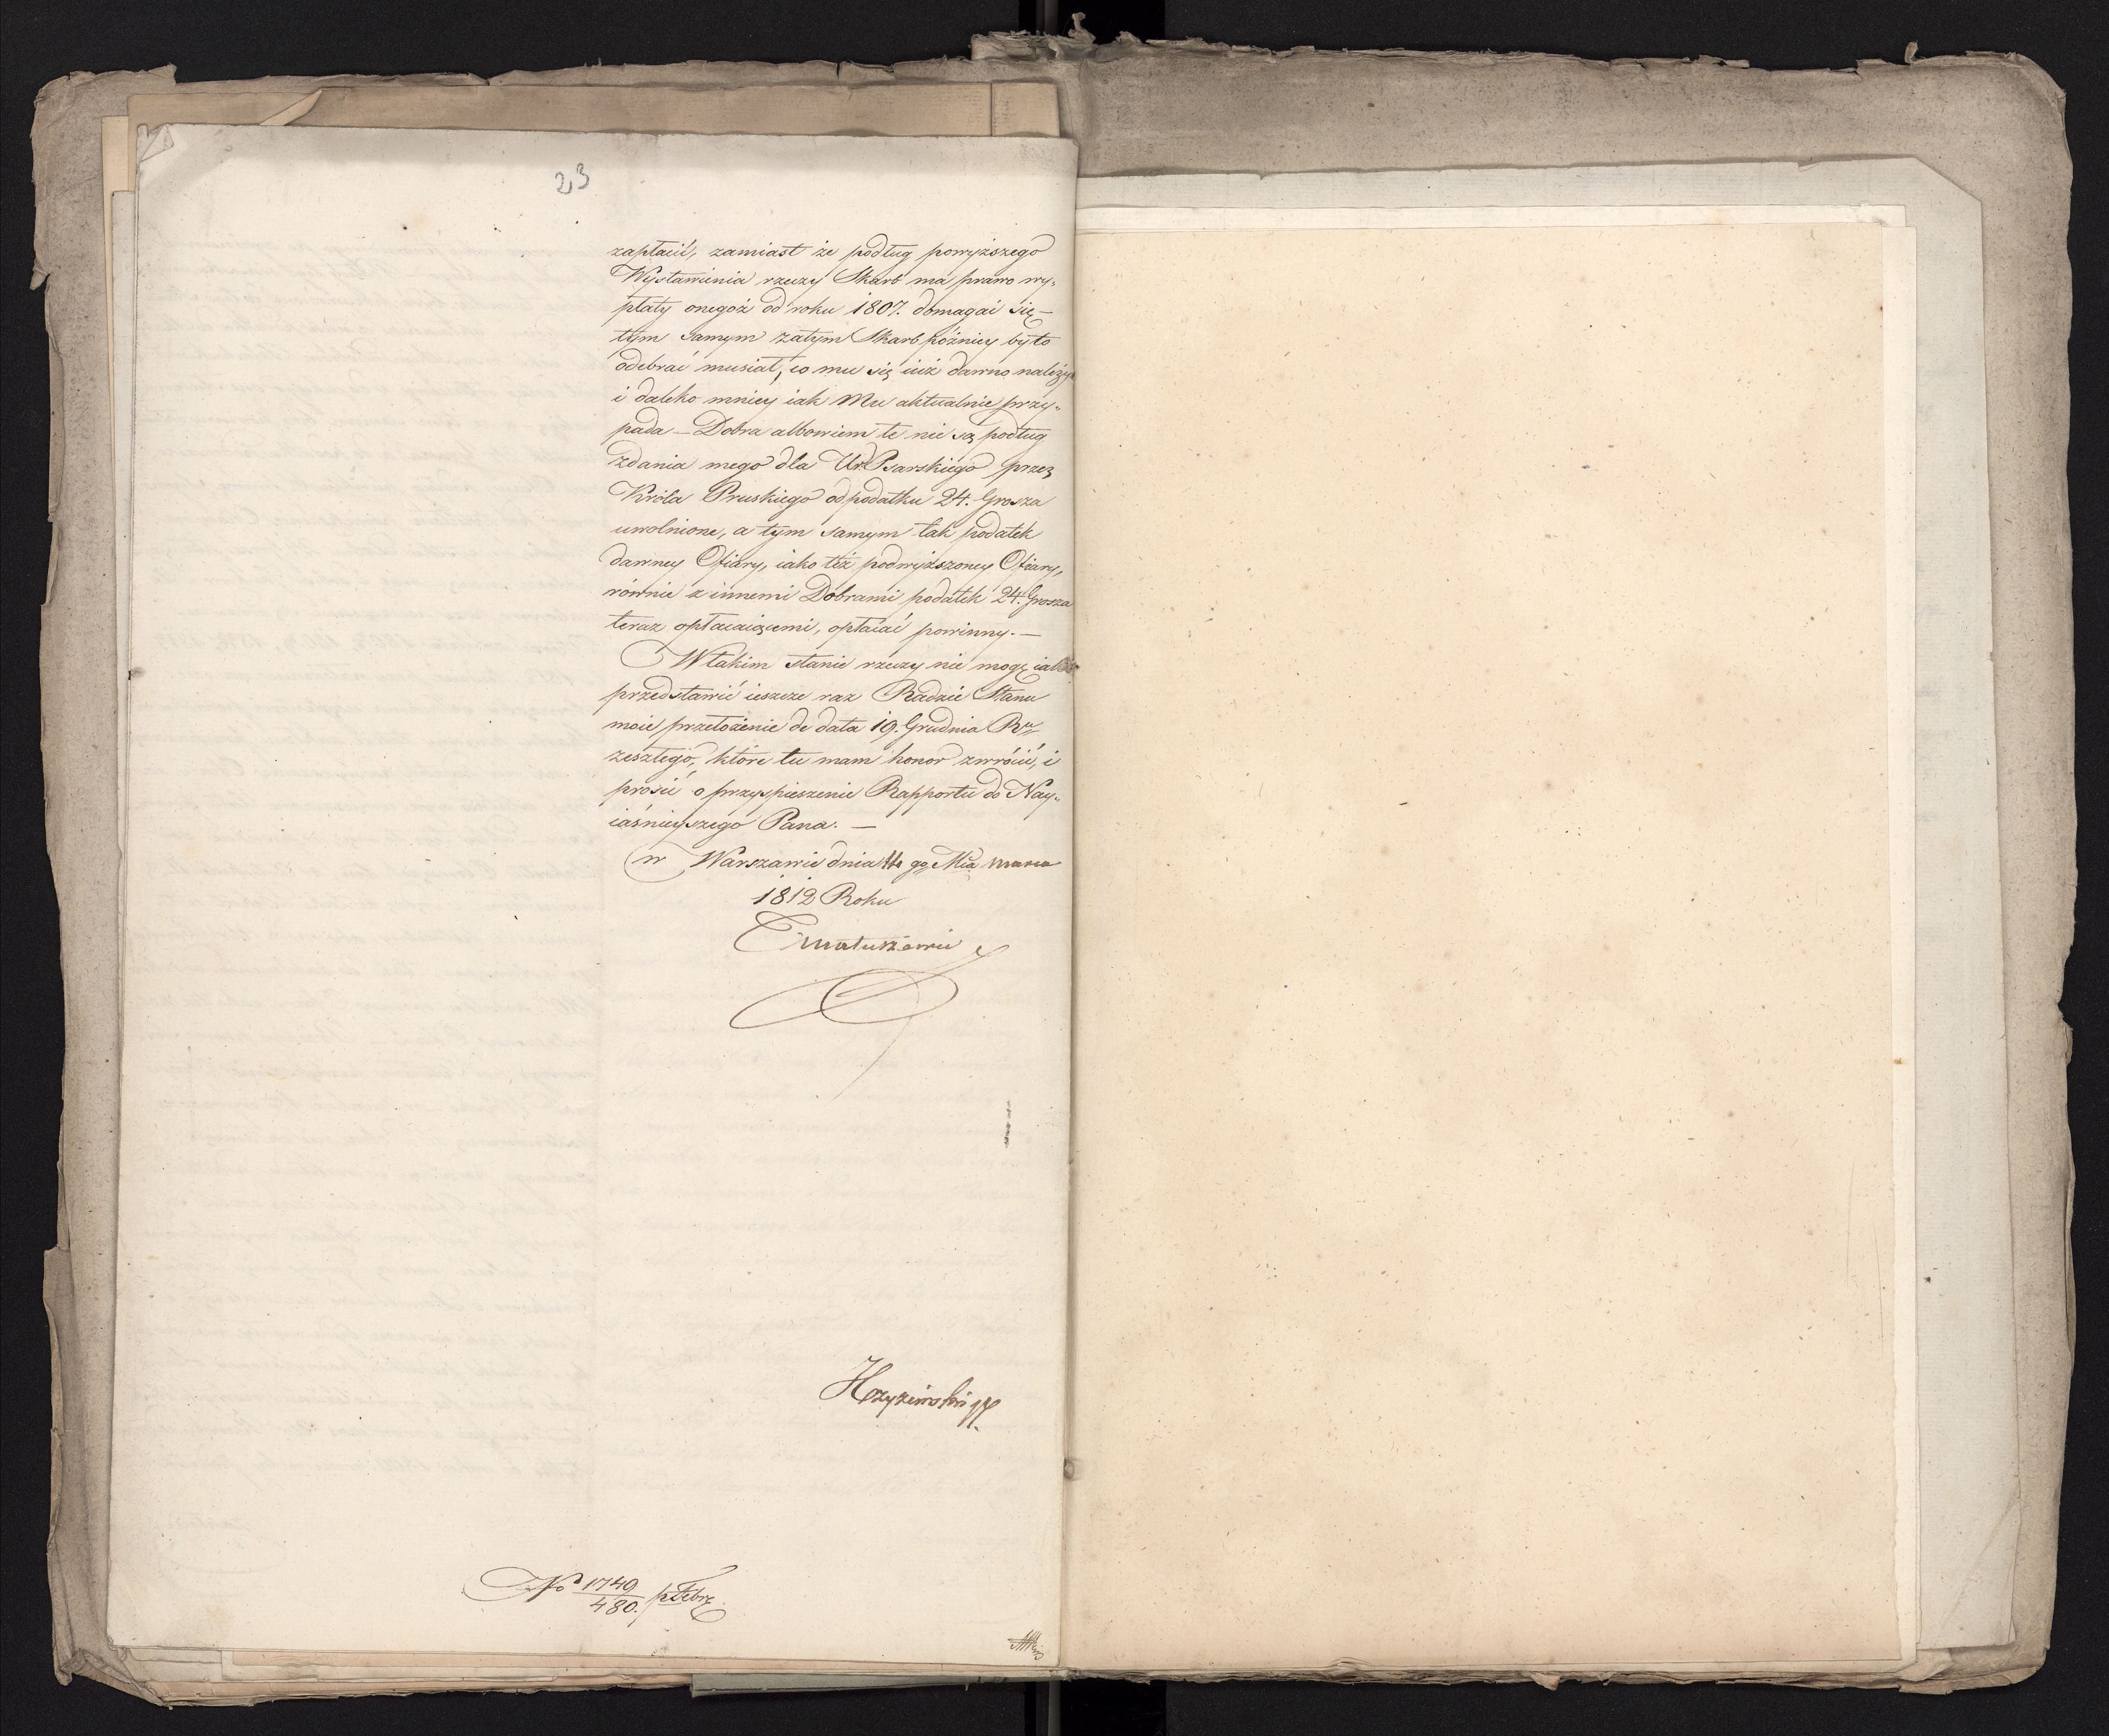 23
zapłacić, zamiast że podług powyższego
Wystawienia rzeczy Skarb ma prawo wy„
płaty onegoż od roku 1807. domagać się —
tym samym zatym Skarb późniey by to
odebrać musiał, co mu się iuż dawno należy
i daleko mniey iak Mu aktualnie przy„
pada — Dobra albowiem te nie są podług
zdania mego dla Ur. Psarskiego przez
Króla Pruskiego od podatku 24. Grosza
uwolnione, a tym samym tak podatek
dawney Ofiary, iako też podwyższoney Ofiary,
równie z innemi Dobrami podatek 24. Grosza
teraz opłacaiącemi, opłacać powinny. —
W takim stanie rzeczy nie mogę iak
przedstawić ieszcze raz Radzie Stanu
moie przełożenie de data 19. Grudnia Ru
zeszłego, które tu mam honor zwrócić, i
prosić o przyspieszenie Rapportu do Nay„
iaśnieyszego Pana. —
w Warszawie dnia go Mca marca
1812 Roku
Matuszewic
No 1749
480.